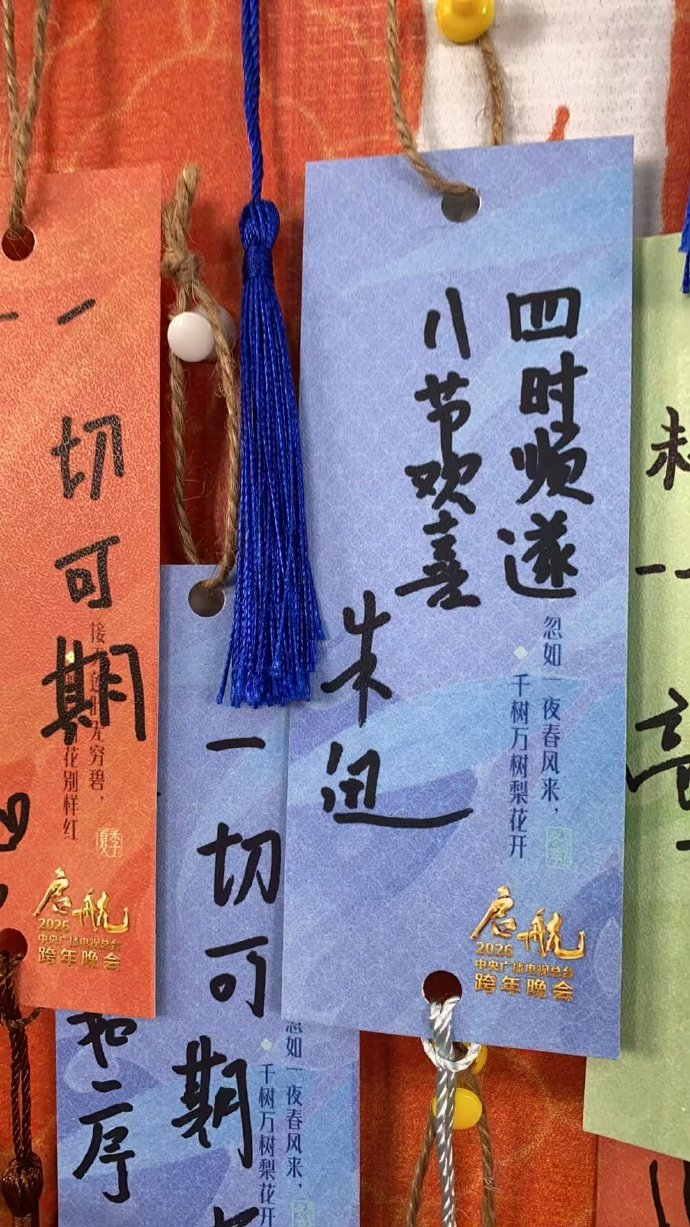 四时顺遂
八节欢喜
朱迅
忽如一夜春风来，
千树万树梨花开
启航
2026
中央广播电视总台
跨年晚会
一切可期
无穷碧，
花别样红
夏季
启航
2026
中央广播电视总台
跨年晚会
一切可期
和二序
忽如一夜春风来，
千树万树梨花开